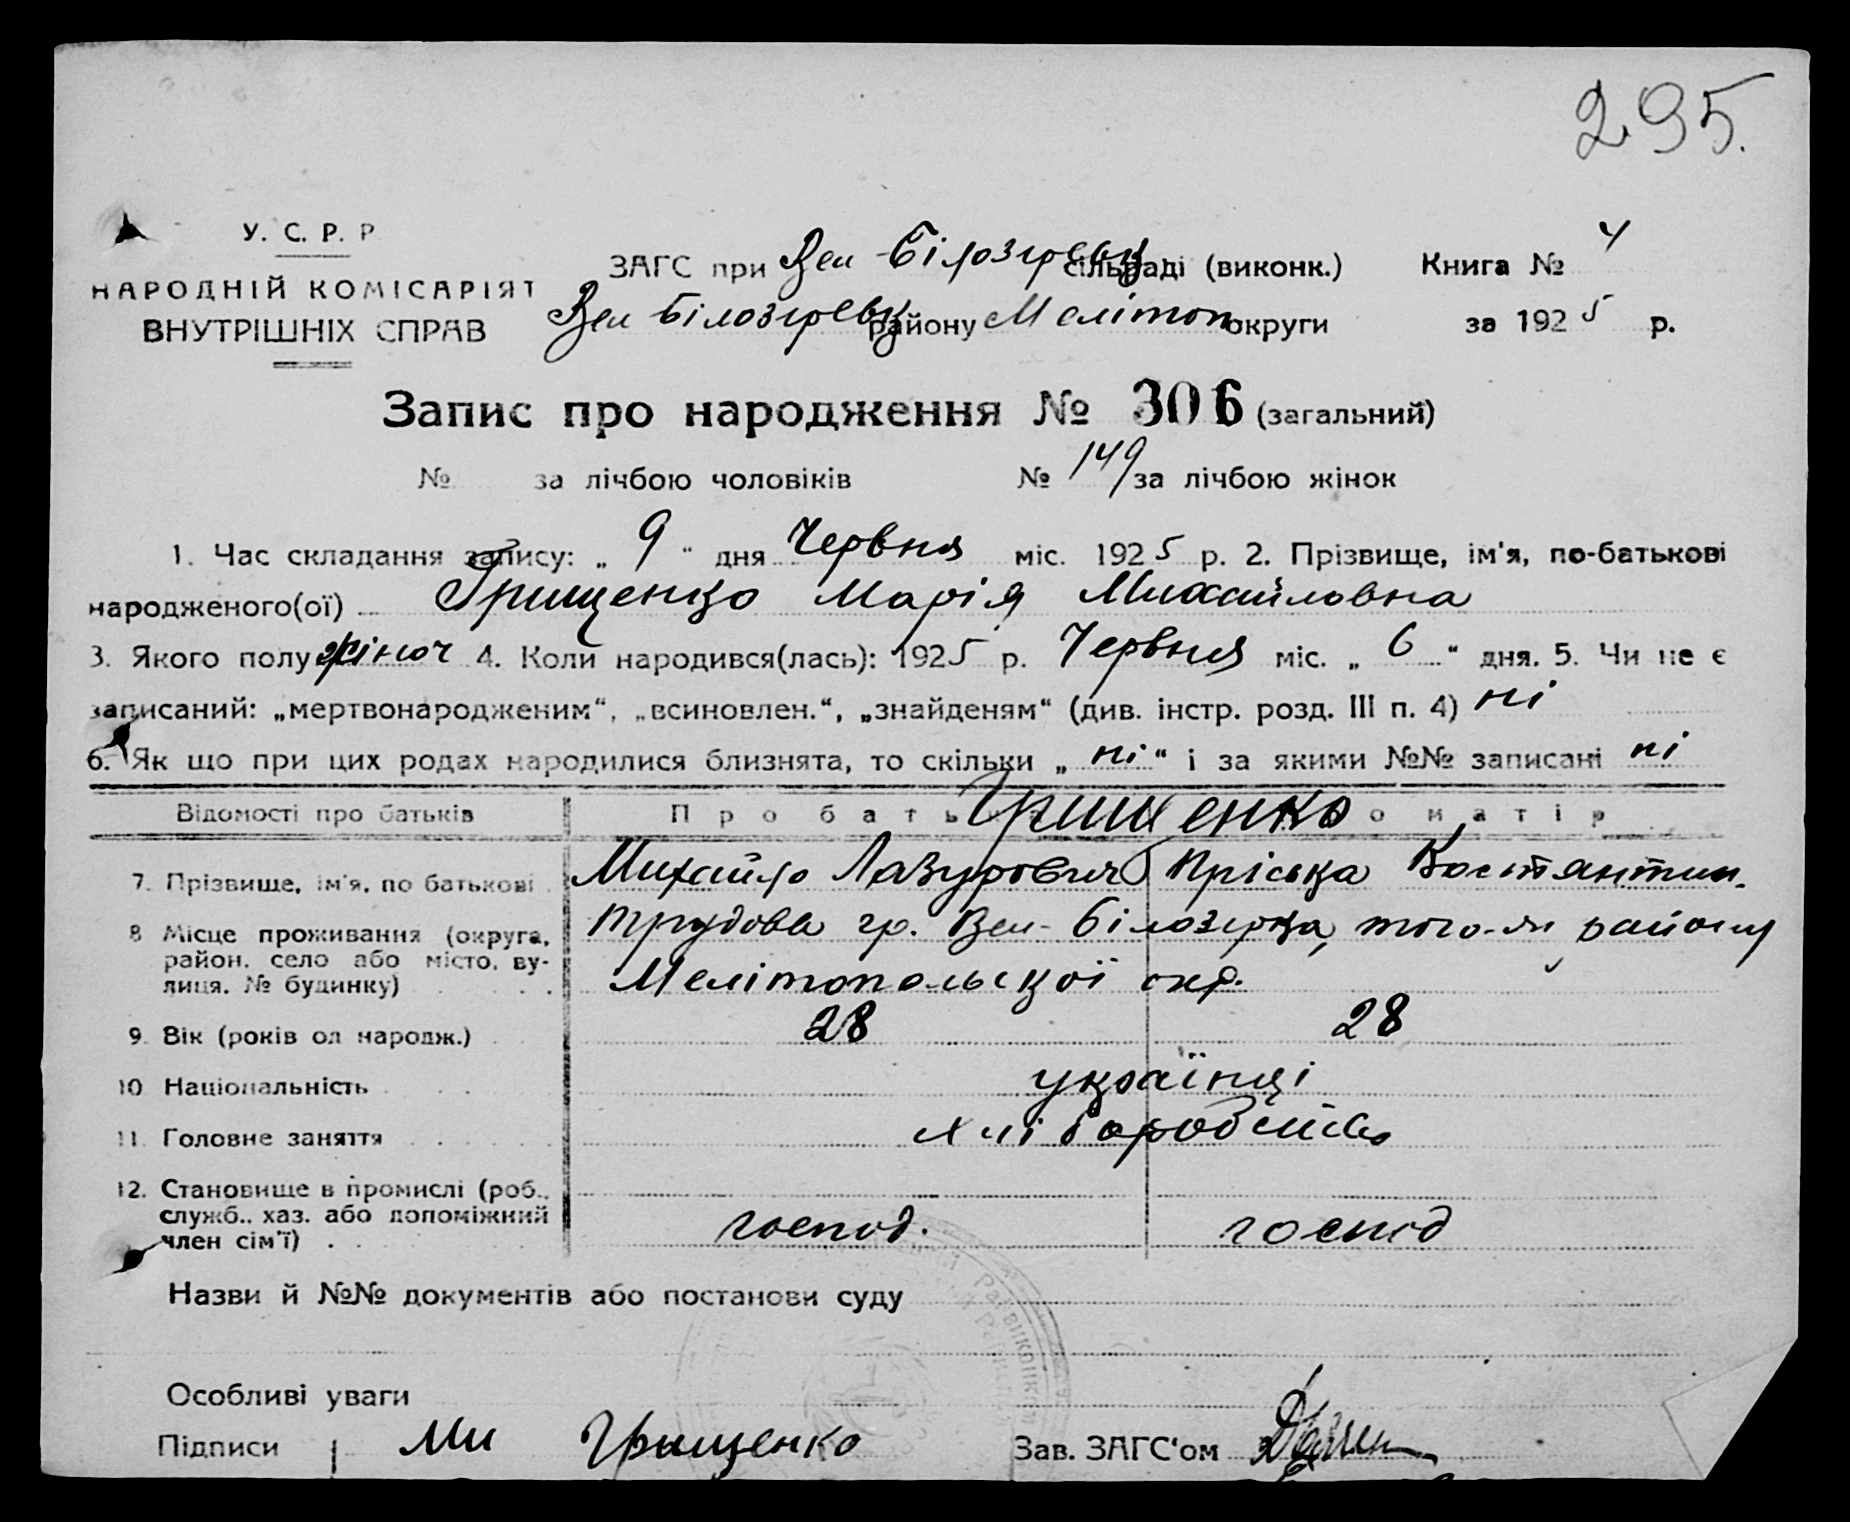 295.
У. С. Р. Р
НАРОДНІЙ КОМІСАРІЯТ
ВНУТРІШНІХ СПРАВ
ЗАГС при Вел-Білозірськ сільраді (виконк.) Книга № 4
Вел Білозірськ району Мелітоп округи за 1925 р.
Запис про народження № 306 (загальний)
№ за лічбою чоловіків № 149 за лічбою жінок
1. Час складання запису: „ 9 " дня Червня міс. 1925 р. 2. Прізвище, ім'я, по-батькові
народженого(ої) Грищенко Марія Михайловна
3. Якого полу жіноч 4. Коли народився(лась): 1925 р. Червня міс. „ 6 " дня. 5. Чи не є
записаний: „мертвонародженим“, „всиновлен.“, „знайденям“ (див. інстр. розд. III п. 4) ні
6. Як що при цих родах народилися близнята, то скільки „ ні “ і за якими №№ записані ні
Відомості про батьків Про бать Грищенко о матір
7. Прізвище, ім'я, по батькові Михайло Лазурович Пріська Костянтин.
8 Місце проживання (округа, район, село або місто, ву- лиця, № будинку) Трудова гр. Вел-Білозірка, того-ж району
Мелітопольської окр.
9. Вік (років од народж.) 28 28
10 Національність українці
11. Головне заняття хліборобство
12. Становище в промислі (роб., служб., хаз. або допоміжний член сім'ї) господ. господ
Назви й №№ документів або постанови суду
Особливі уваги
Підписи Ми Грищенко Зав. ЗАГС'ом